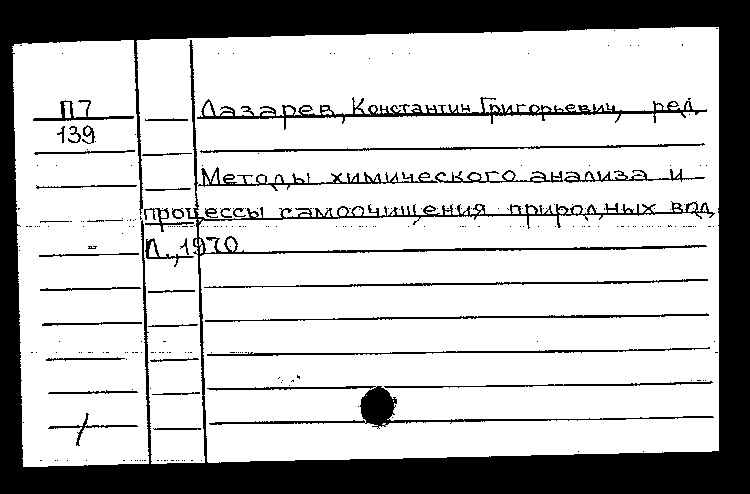 П7 Лазарев, Константин Григорьевич, ред.
139
Методы химического анализа и
процессы самоочищения природных вод
Л., 1970.